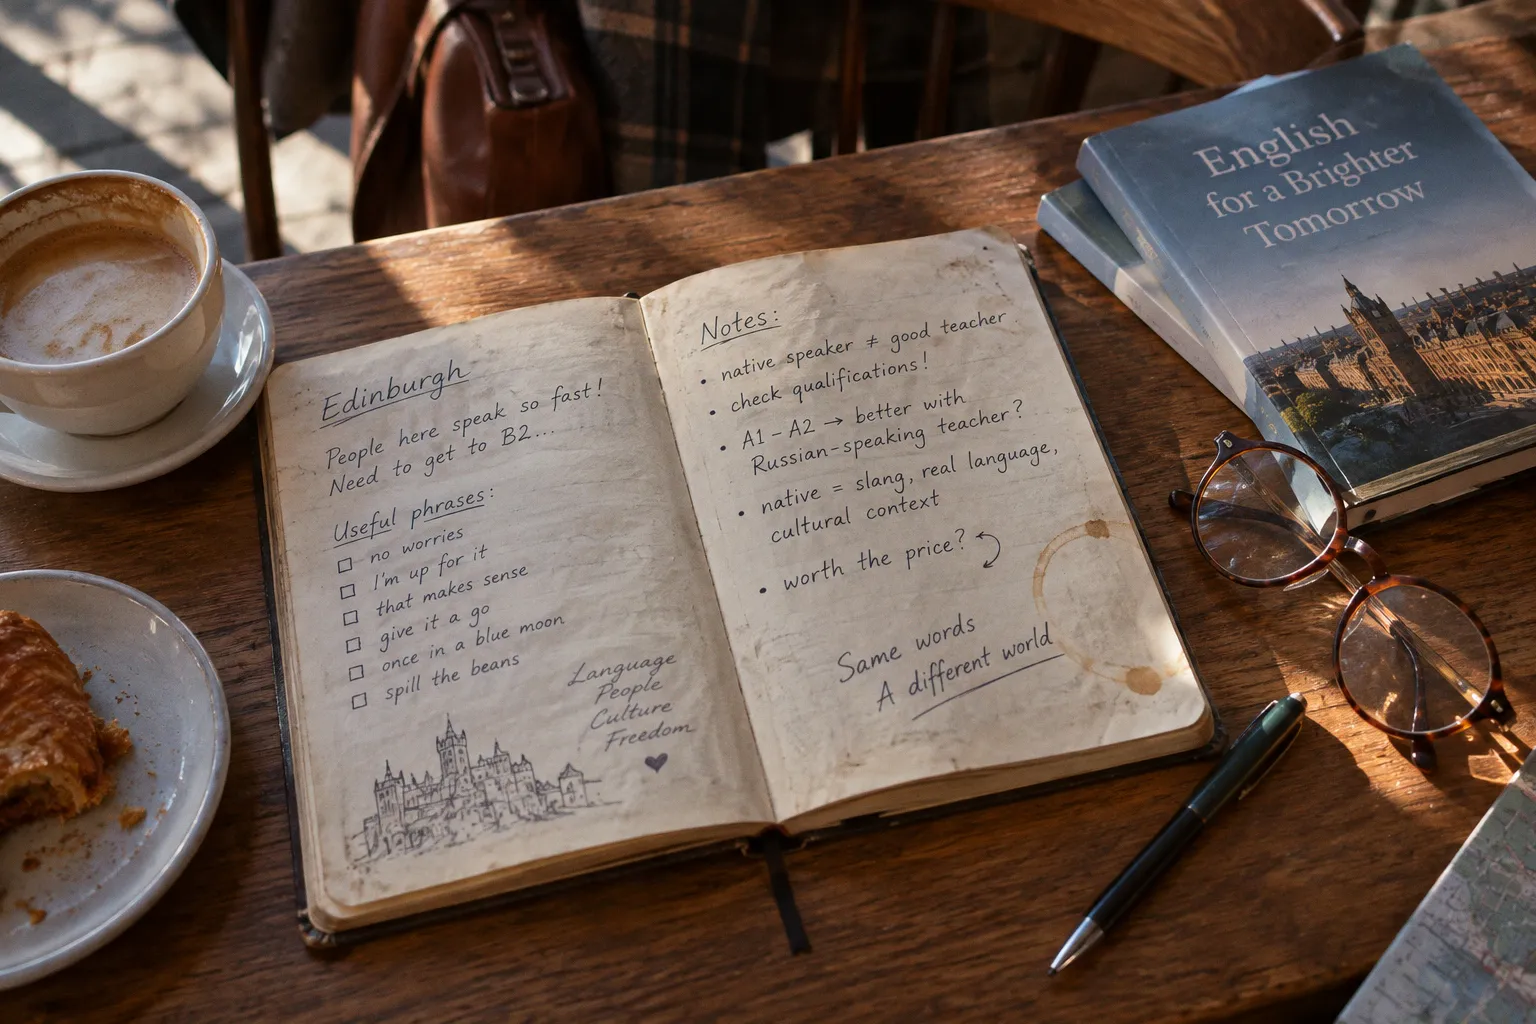 Edinburgh
People here speak so fast!
Need to get to B2...
Useful phrases:
no worries
I'm up for it
that makes sense
give it a go
once in a blue moon
spill the beans
Language
People
Culture
Freedom
Notes:
• native speaker ≠ good teacher
• check qualifications!
• A1 – A2 → better with
Russian-speaking teacher?
• native = slang, real language,
cultural context
• worth the price?
Same words
A different world
English
for a Brighter
Tomorrow